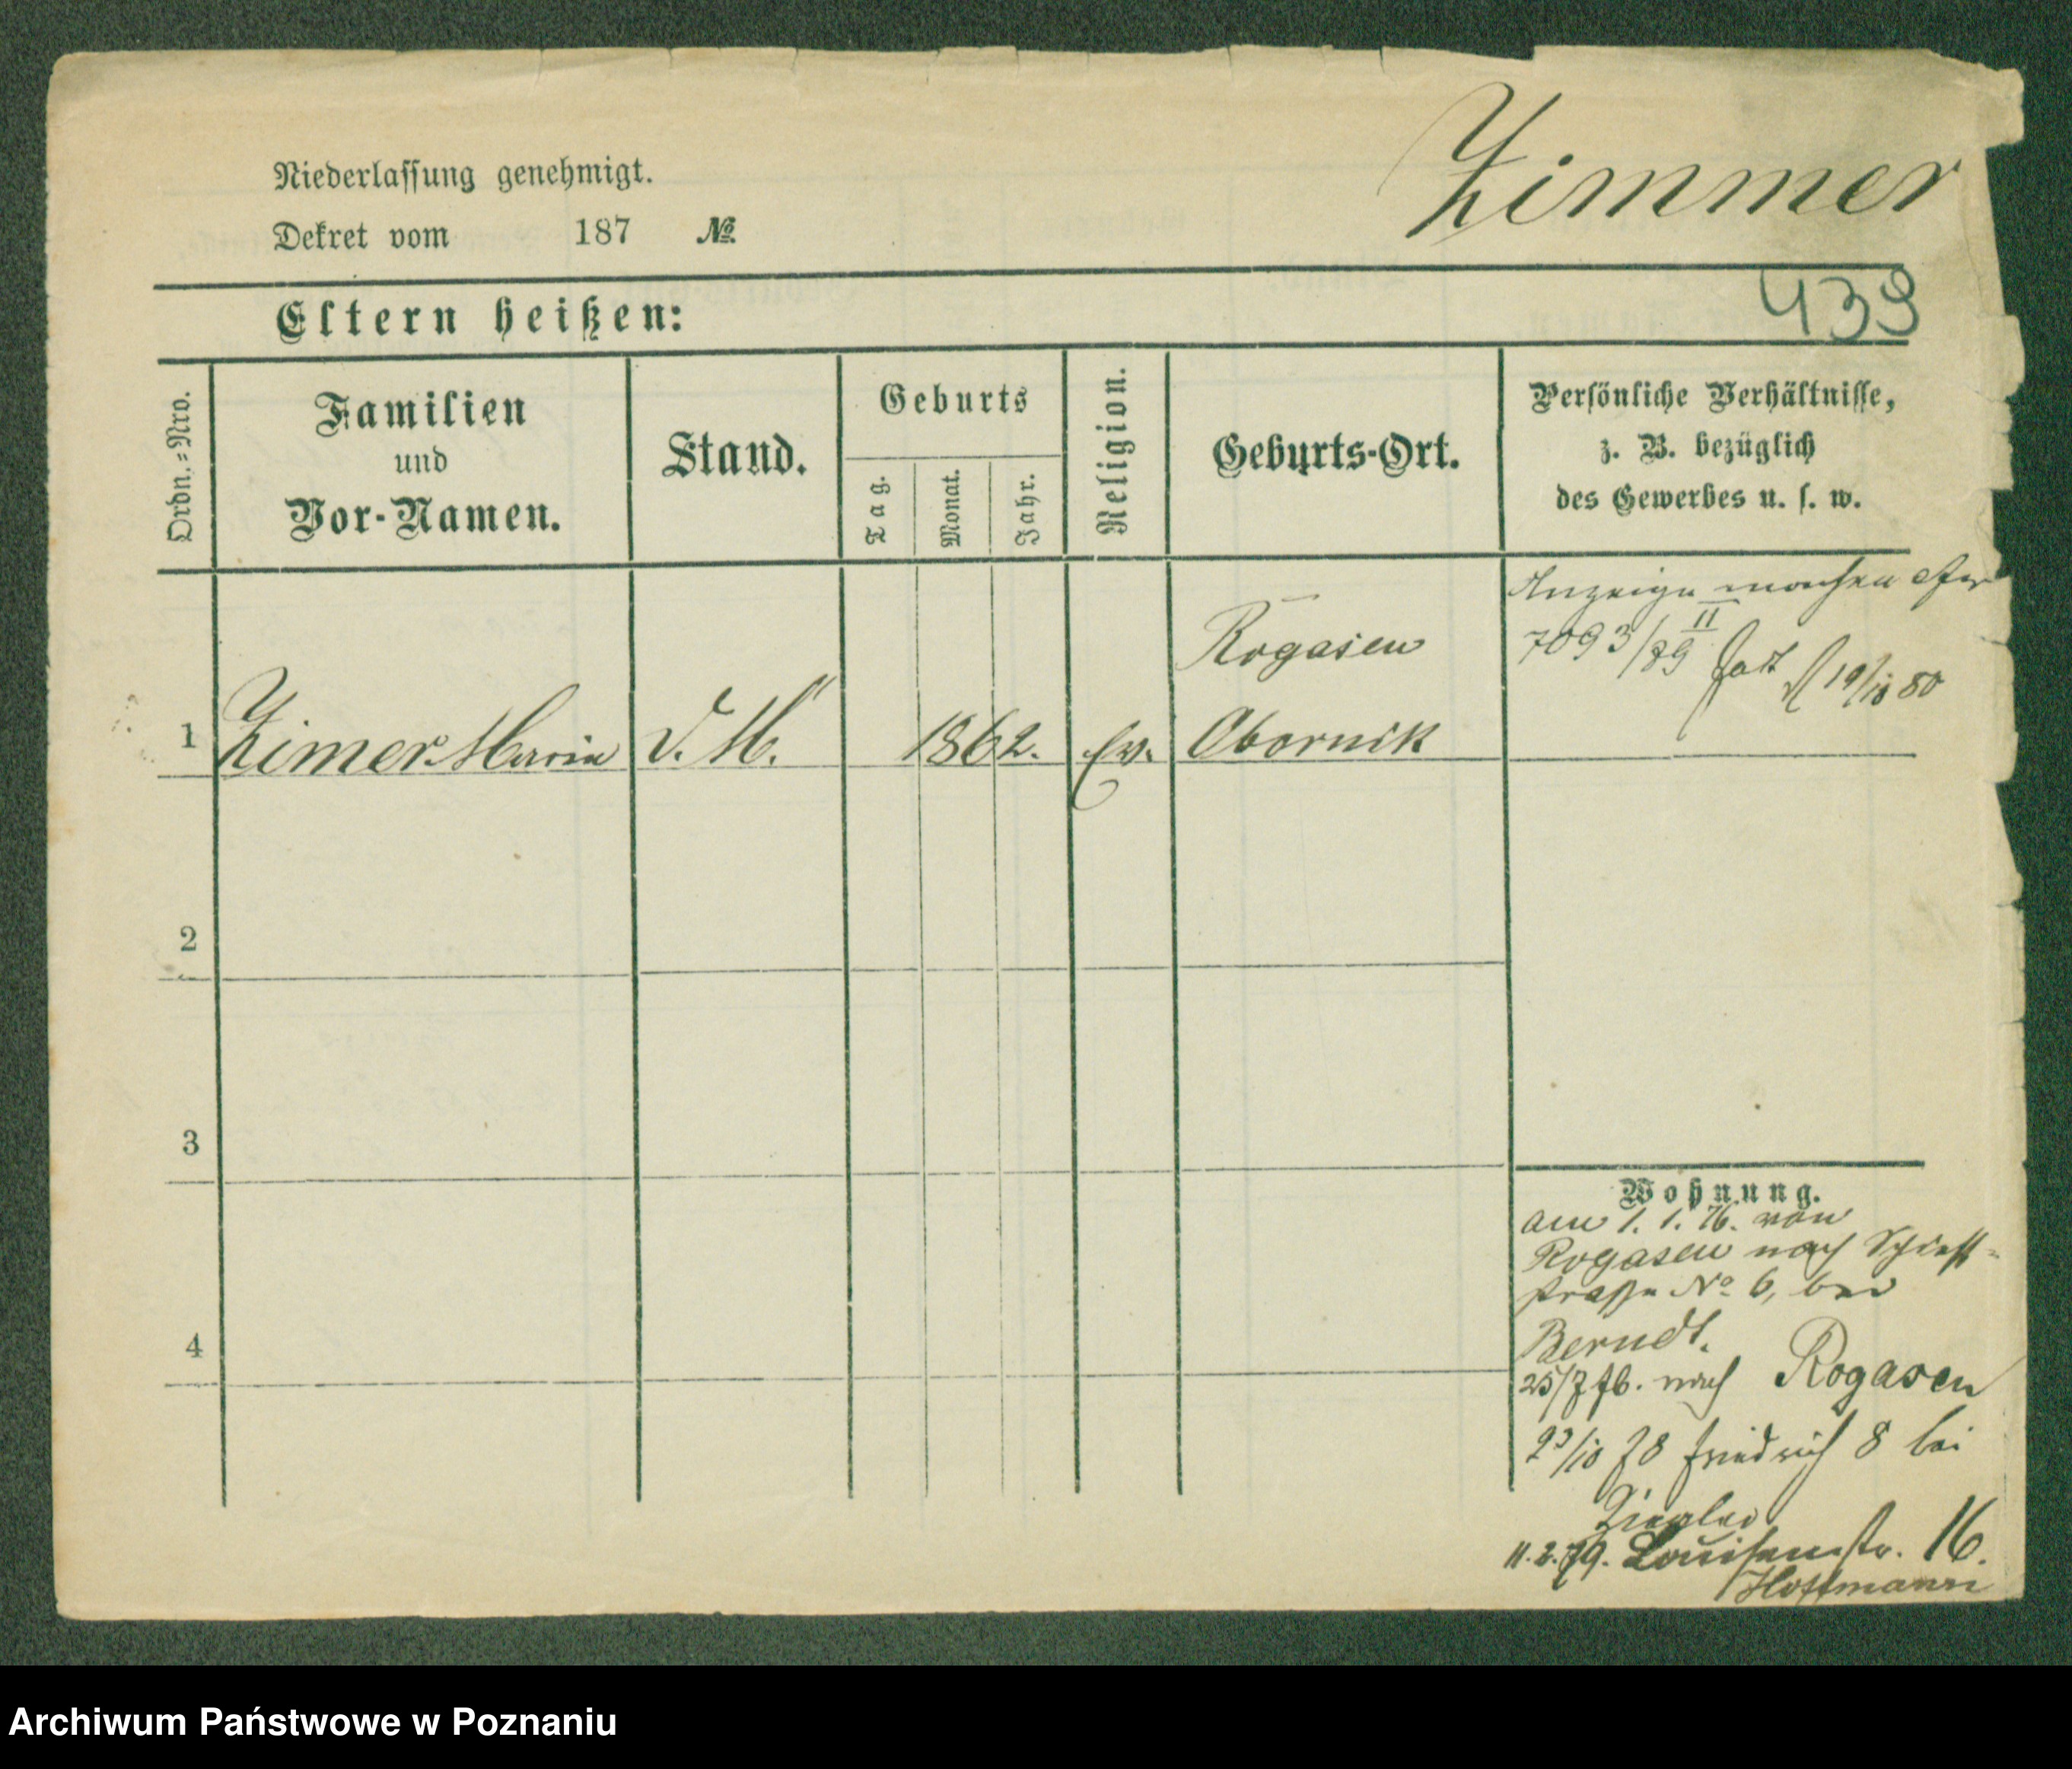 Zimmer
Niederlassung genehmigt.
Dekret vom 187 №
439
Eltern heißen:
Ordn.=Nro.
Familien
und
Vor-Namen.
Stand.
Geburts
Tag.
Monat.
Jahr.
Religion.
Geburts-Ort.
Persönliche Verhältnisse,
z. B. bezüglich
des Gewerbes u. s. w.
Anzeige machen
7093/79 II 19/10 80
Rogasen
1 Zimer Maria D. M. 1862. Ev. Obornik
2
3
4
Wohnung.
am 1. 1. 76. von
Rogasen nach Schieß-
straße No 6, bei
Berndt.
25/7 76. nach Rogasen
23/10 78 Friedrich 8 bei
Ziegler
11.2.79. Louisenstr. 16.
Hoffmann
Archiwum Państwowe w Poznaniu